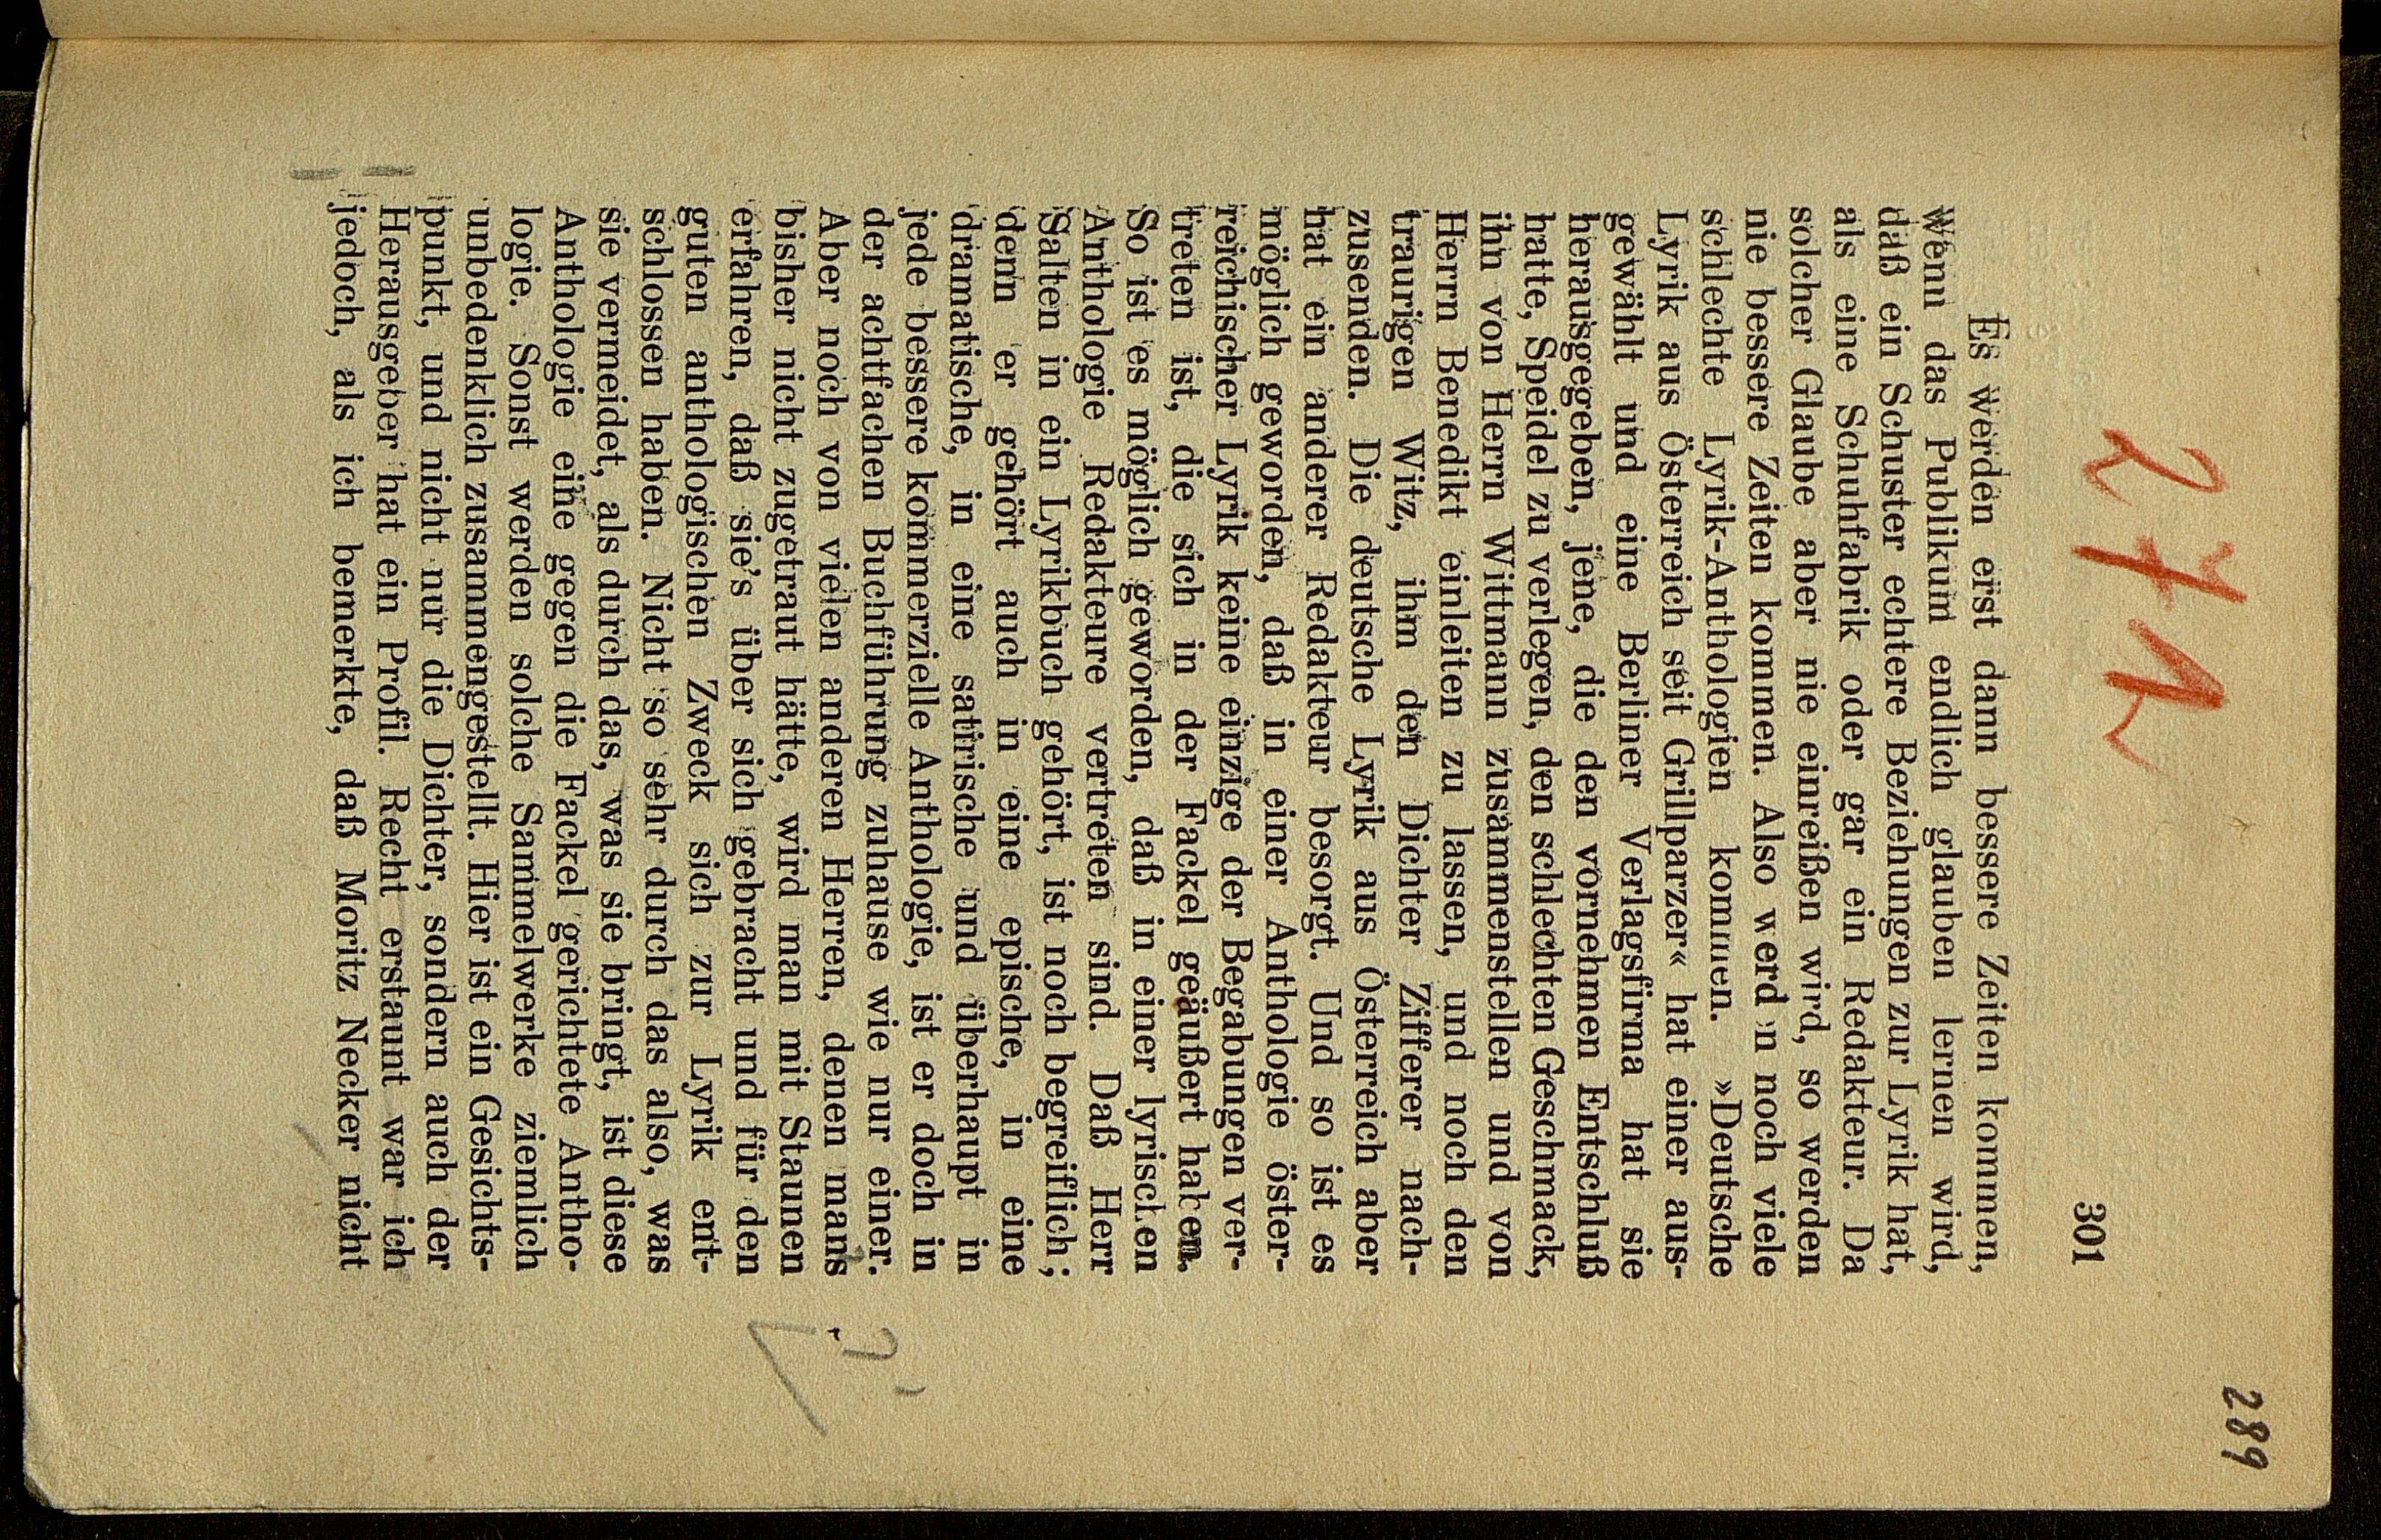 289
271
301
Es werden erst dann bessere Zeiten kommen,
wenn das Publikum endlich glauben lernen wird,
daß ein Schuster echtere Beziehungen zur Lyrik hat,
als eine Schuhfabrik oder gar ein Redakteur. Da
solcher Glaube aber nie einreißen wird, so werden
nie bessere Zeiten kommen. Also werd n noch viele
schlechte Lyrik-Anthologien kommen. »Deutsche
Lyrik aus Österreich seit Grillparzer« hat einer aus-
gewählt und eine Berliner Verlagsfirma hat sie
herausgegeben, jene, die den vornehmen Entschluß
hatte, Speidel zu verlegen, den schlechten Geschmack,
ihn von Herrn Wittmann zusammenstellen und von
Herrn Benedikt einleiten zu lassen, und noch den
traurigen Witz, ihm den Dichter Zifferer nach-
zusenden. Die deutsche Lyrik aus Österreich aber
hat ein anderer Redakteur besorgt. Und so ist es
möglich geworden, daß in einer Anthologie öster-
reichischer Lyrik keine einzige der Begabungen ver-
treten ist, die sich in der Fackel geäußert haben.
So ist es möglich geworden, daß in einer lyrischen
Anthologie Redakteure vertreten sind. Daß Herr
Salten in ein Lyrikbuch gehört, ist noch begreiflich;
denn er gehört auch in eine epische, in eine
dramatische, in eine satirische und überhaupt in
jede bessere kommerzielle Anthologie, ist er doch in
der achtfachen Buchführung zuhause wie nur einer.
Aber noch von vielen anderen Herren, denen mans
bisher nicht zugetraut hätte, wird man mit Staunen
erfahren, daß sie's über sich gebracht und für den
guten anthologischen Zweck sich zur Lyrik ent-
schlossen haben. Nicht so sehr durch das also, was
sie vermeidet, als durch das, was sie bringt, ist diese
Anthologie eine gegen die Fackel gerichtete Antho-
logie. Sonst werden solche Sammelwerke ziemlich
unbedenklich zusammengestellt. Hier ist ein Gesichts-
punkt, und nicht nur die Dichter, sondern auch der
Herausgeber hat ein Profil. Recht erstaunt war ich
jedoch, als ich bemerkte, daß Moritz Necker nicht